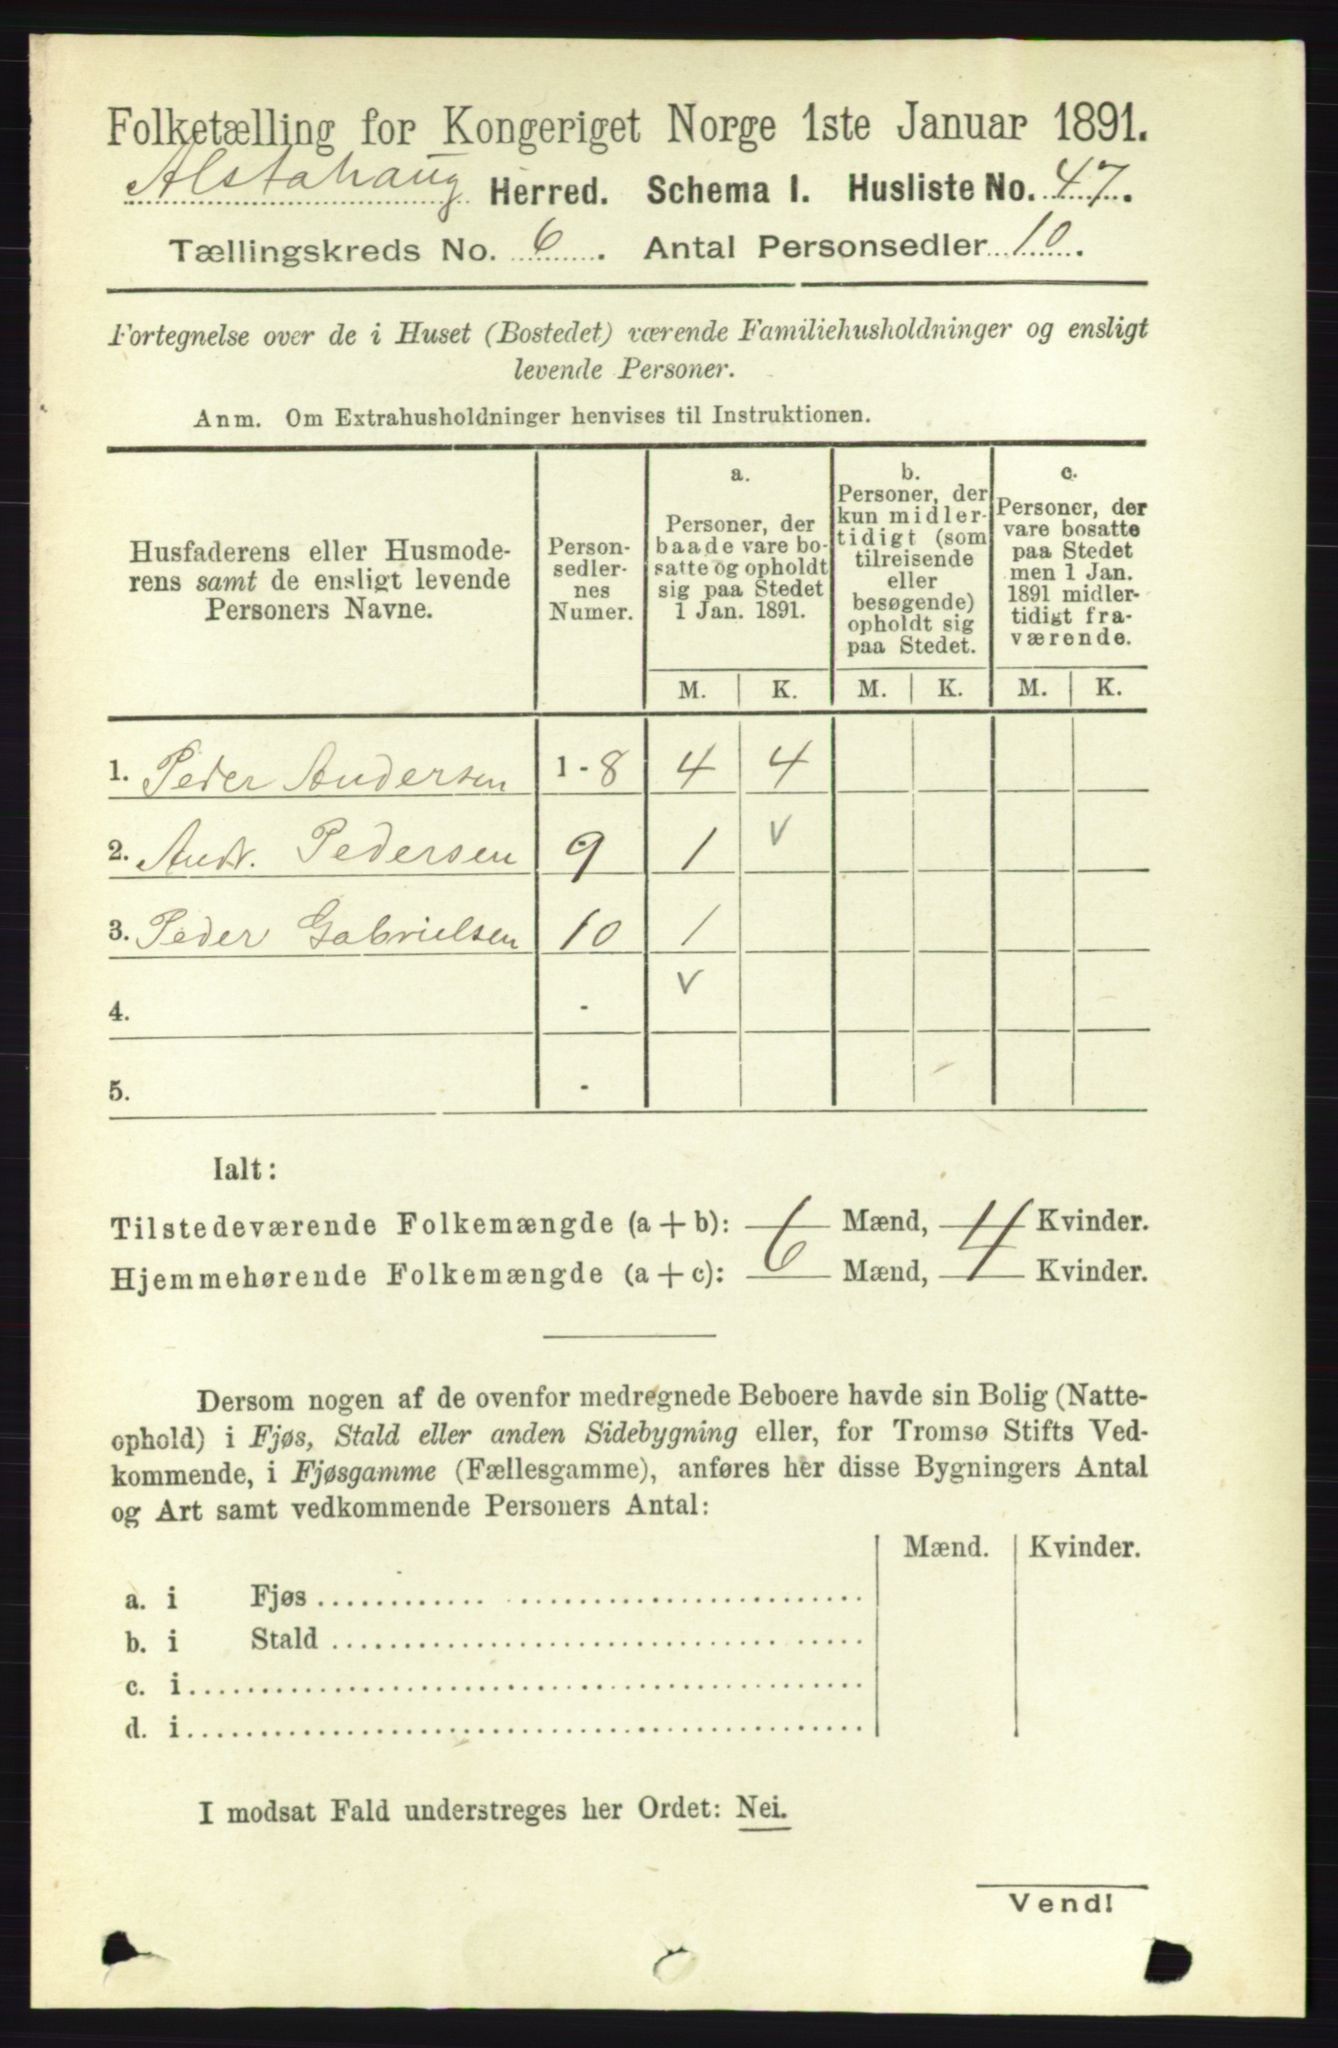 Folketælling for Kongeriget Norge 1ste Januar 1891.
Alstahaug Herred. Schema I. Husliste No. 47.
Tællingskreds No. 6. Antal Personsedler 10.
Fortegnelse over de i Huset (Bostedet) værende Familiehusholdninger og ensligt
levende Personer.
Anm. Om Extrahusholdninger henvises til Instruktionen.
Husfaderens eller Husmode-
rens samt de ensligt levende
Personers Navne.
Person-
sedler-
nes
Numer.
a.
Personer, der
baade vare bo-
satte og opholdt
sig paa Stedet
1 Jan. 1891.
b.
Personer, der
kun midler-
tidigt (som
tilreisende
eller
besøgende)
opholdt sig
paa Stedet.
c.
Personer, der
vare bosatte
paa Stedet
men 1 Jan.
1891 midler-
tidigt fra-
værende.
M. K. M. K. M. K.
1. Peder Andersen 1-8 4 4
2. Andr. Pedersen 9 1 v
3. Peder Gabrielsen 10 1
4. - v
5. -
Ialt:
Tilstedeværende Folkemængde (a + b): 6 Mænd, 4 Kvinder.
Hjemmehørende Folkemængde (a + c): 6 Mænd, 4 Kvinder.
Dersom nogen af de ovenfor medregnede Beboere havde sin Bolig (Natte-
ophold) i Fjøs, Stald eller anden Sidebygning eller, for Tromsø Stifts Ved-
kommende, i Fjøsgamme (Fællesgamme), anføres her disse Bygningers Antal
og Art samt vedkommende Personers Antal:
Mænd. Kvinder.
a. i Fjøs
b. i Stald
c. i
d. i
I modsat Fald understreges her Ordet: Nei.
Vend!